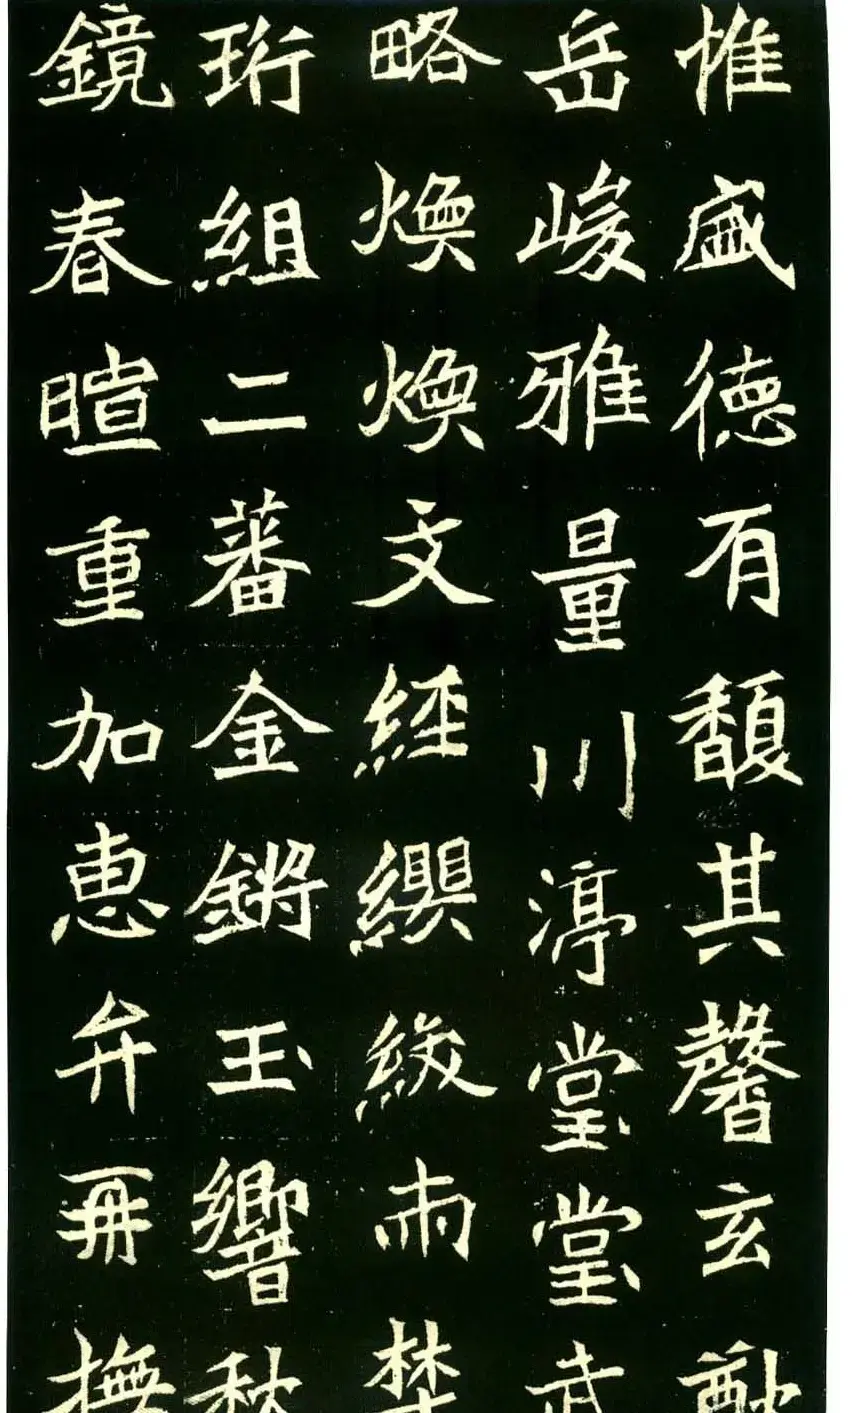 惟盛德有馥其馨玄猷
岳峻雅量川渟堂堂武
略煥煥文經纓緌兩
珩組二蕃金鏘玉響秋
鏡春暄重加惠弁再撫